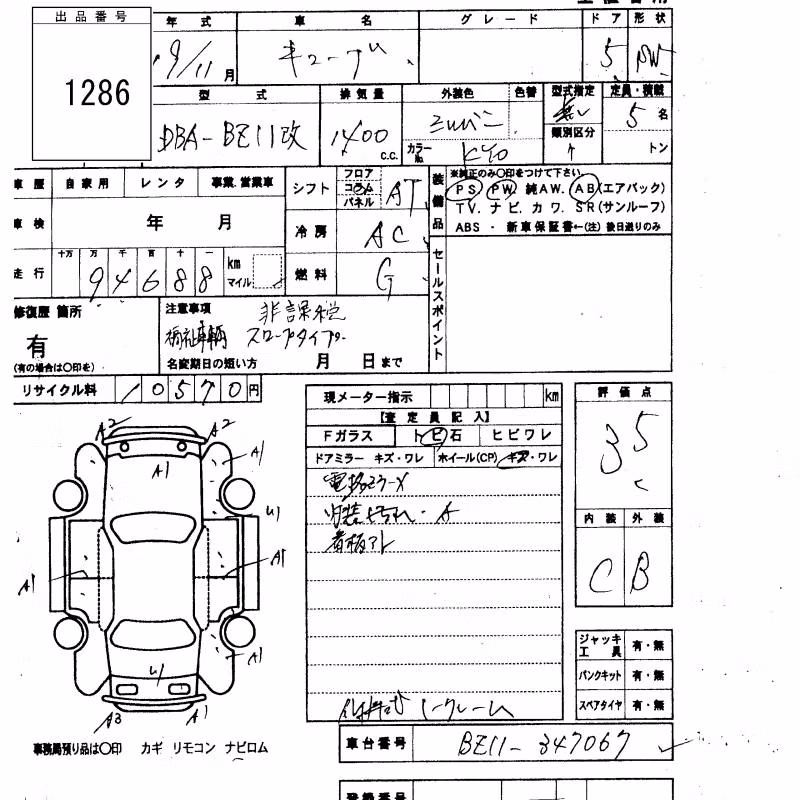 出品番号
1286
年式 車名 グレード ドア 形状
19/11月 キューブ 5 PW
型式 排気量 外装色 色替 型式指定 定員・積載
DBA-BZ11改 1400 c.c. カラーNo. KY0 類別区分 5名
トン
車歴 自家用 レンタ 事業.営業車
シフト フロア コラム パネル AT
車検 年 月
冷房 AC
走行 十万 万 千 百 十 一
94688 km マイル
燃料 G
装備品 ※純正のみ○印をつけて下さい。
PS PW 純AW. AB(エアバック)
TV. ナビ. カワ. SR(サンルーフ)
ABS ・ 新車保証書←(注) 後日送りのみ
セールスポイント
修復歴 箇所
有
(有の場合は○印を)
注意事項 非課税
福祉車輌 スロープタイプ
名変期日の短い方 月 日まで
リサイクル料 10570円
現メーター指示 km
【査定員記入】
Fガラス トビ石 ヒビワレ
ドアミラー キズ・ワレ ホイール(CP) キズ・ワレ
電格ミラーX
内装ヨゴレ・A
看板アト
評価点
3.5
内装 外装
C B
A2 A2
A1 A1
U1
A1 A1
A1
U1
A3 A1
ジャッキ 工具 有・無
パンクキット 有・無
スペアタイヤ 有・無
事務局預り品は○印 カギ リモコン ナビロム
車台番号 BZ11-347067
登録番号